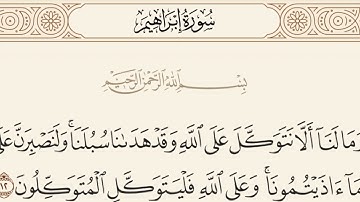 سُورَةُ إِبْرَاهِيمَ
بِسْمِ اللَّهِ الرَّحْمَٰنِ الرَّحِيمِ
وَمَا لَنَآ أَلَّا نَتَوَكَّلَ عَلَى ٱللَّهِ وَقَدْ هَدَىٰنَا سُبُلَنَا ۚ وَلَنَصْبِرَنَّ عَلَىٰ
مَآ ءَاذَيْتُمُونَا ۚ وَعَلَى ٱللَّهِ فَلْيَتَوَكَّلِ ٱلْمُتَوَكِّلُونَ ١٢